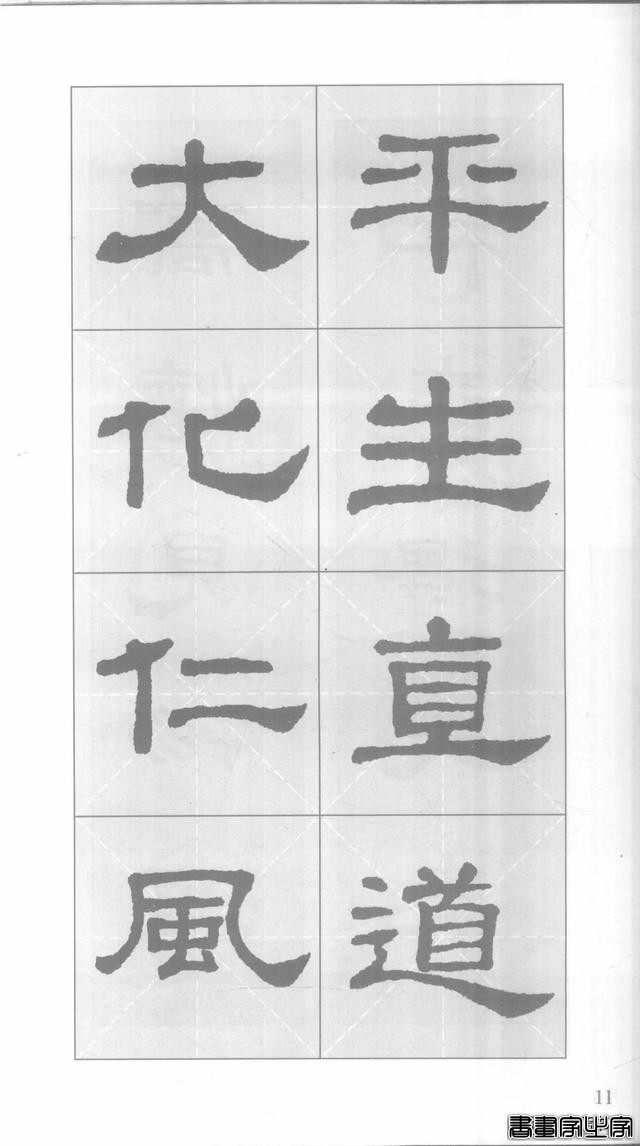 平生直道
大化仁風
11
書畫家必家